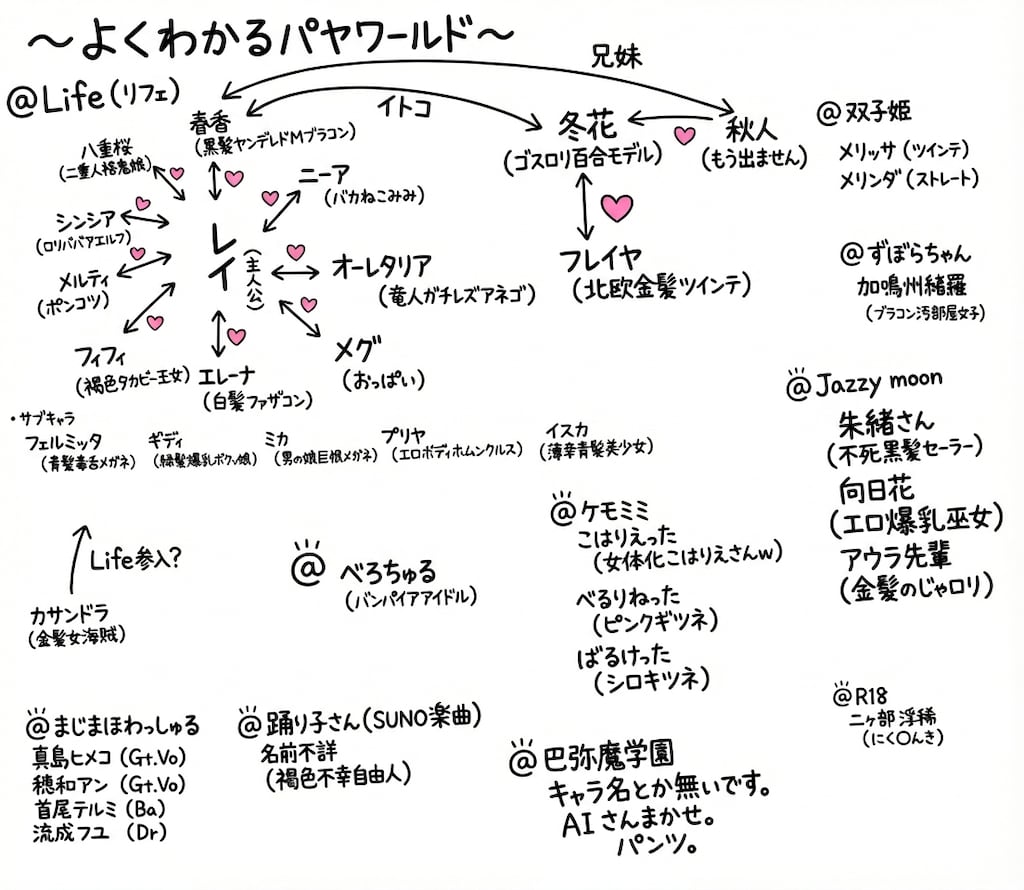 ～よくわかるパヤワールド～
@Life(リフェ)
兄妹
イトコ
春香
(黒髪ヤンデレドMブラコン)
八重桜
(二重人格鬼娘)
ニーア
(バカねこみみ)
シンシア
(ロリババアエルフ)
レイ
(主人公)
オーレタリア
(竜人ガチレズアネゴ)
メルティ
(ポンコツ)
フィフィ
(褐色タカビー王女)
エレーナ
(白髪ファザコン)
メグ
(おっぱい)
冬花
(ゴスロリ百合モデル)
秋人
(もう出ません)
フレイヤ
(北欧金髪ツインテ)
@双子姫
メリッサ(ツインテ)
メリンダ(ストレート)
@ずぼらちゃん
加鳴州緒羅
(ブラコン汚部屋女子)
・サブキャラ
フェルミッタ
(青髪毒舌メガネ)
ギディ
(緑髪爆乳ボクっ娘)
ミカ
(男の娘巨根メガネ)
プリヤ
(エロボディホムンクルス)
イスカ
(薄幸青髪美少女)
@Jazzy moon
朱緒さん
(不死黒髪セーラー)
向日花
(エロ爆乳巫女)
アウラ先輩
(金髪のじゃロリ)
Life参入?
カサンドラ
(金髪女海賊)
@べろちゅる
(バンパイアアイドル)
@ケモミミ
こはりえった
(女体化こはりえさんw)
べるりねった
(ピンクギツネ)
ばるけった
(シロキツネ)
@まじまほわっしゅる
真島ヒメコ(Gt.Vo)
穂和アン(Gt.Vo)
首尾テルミ(Ba)
流成フユ(Dr)
@踊り子さん(SUNO楽曲)
名前不詳
(褐色不幸自由人)
@巴弥魔学園
キャラ名とか無いです。
AIさんまかせ。
パンツ。
@R18
二ヶ部浮稀
(にく〇んき)